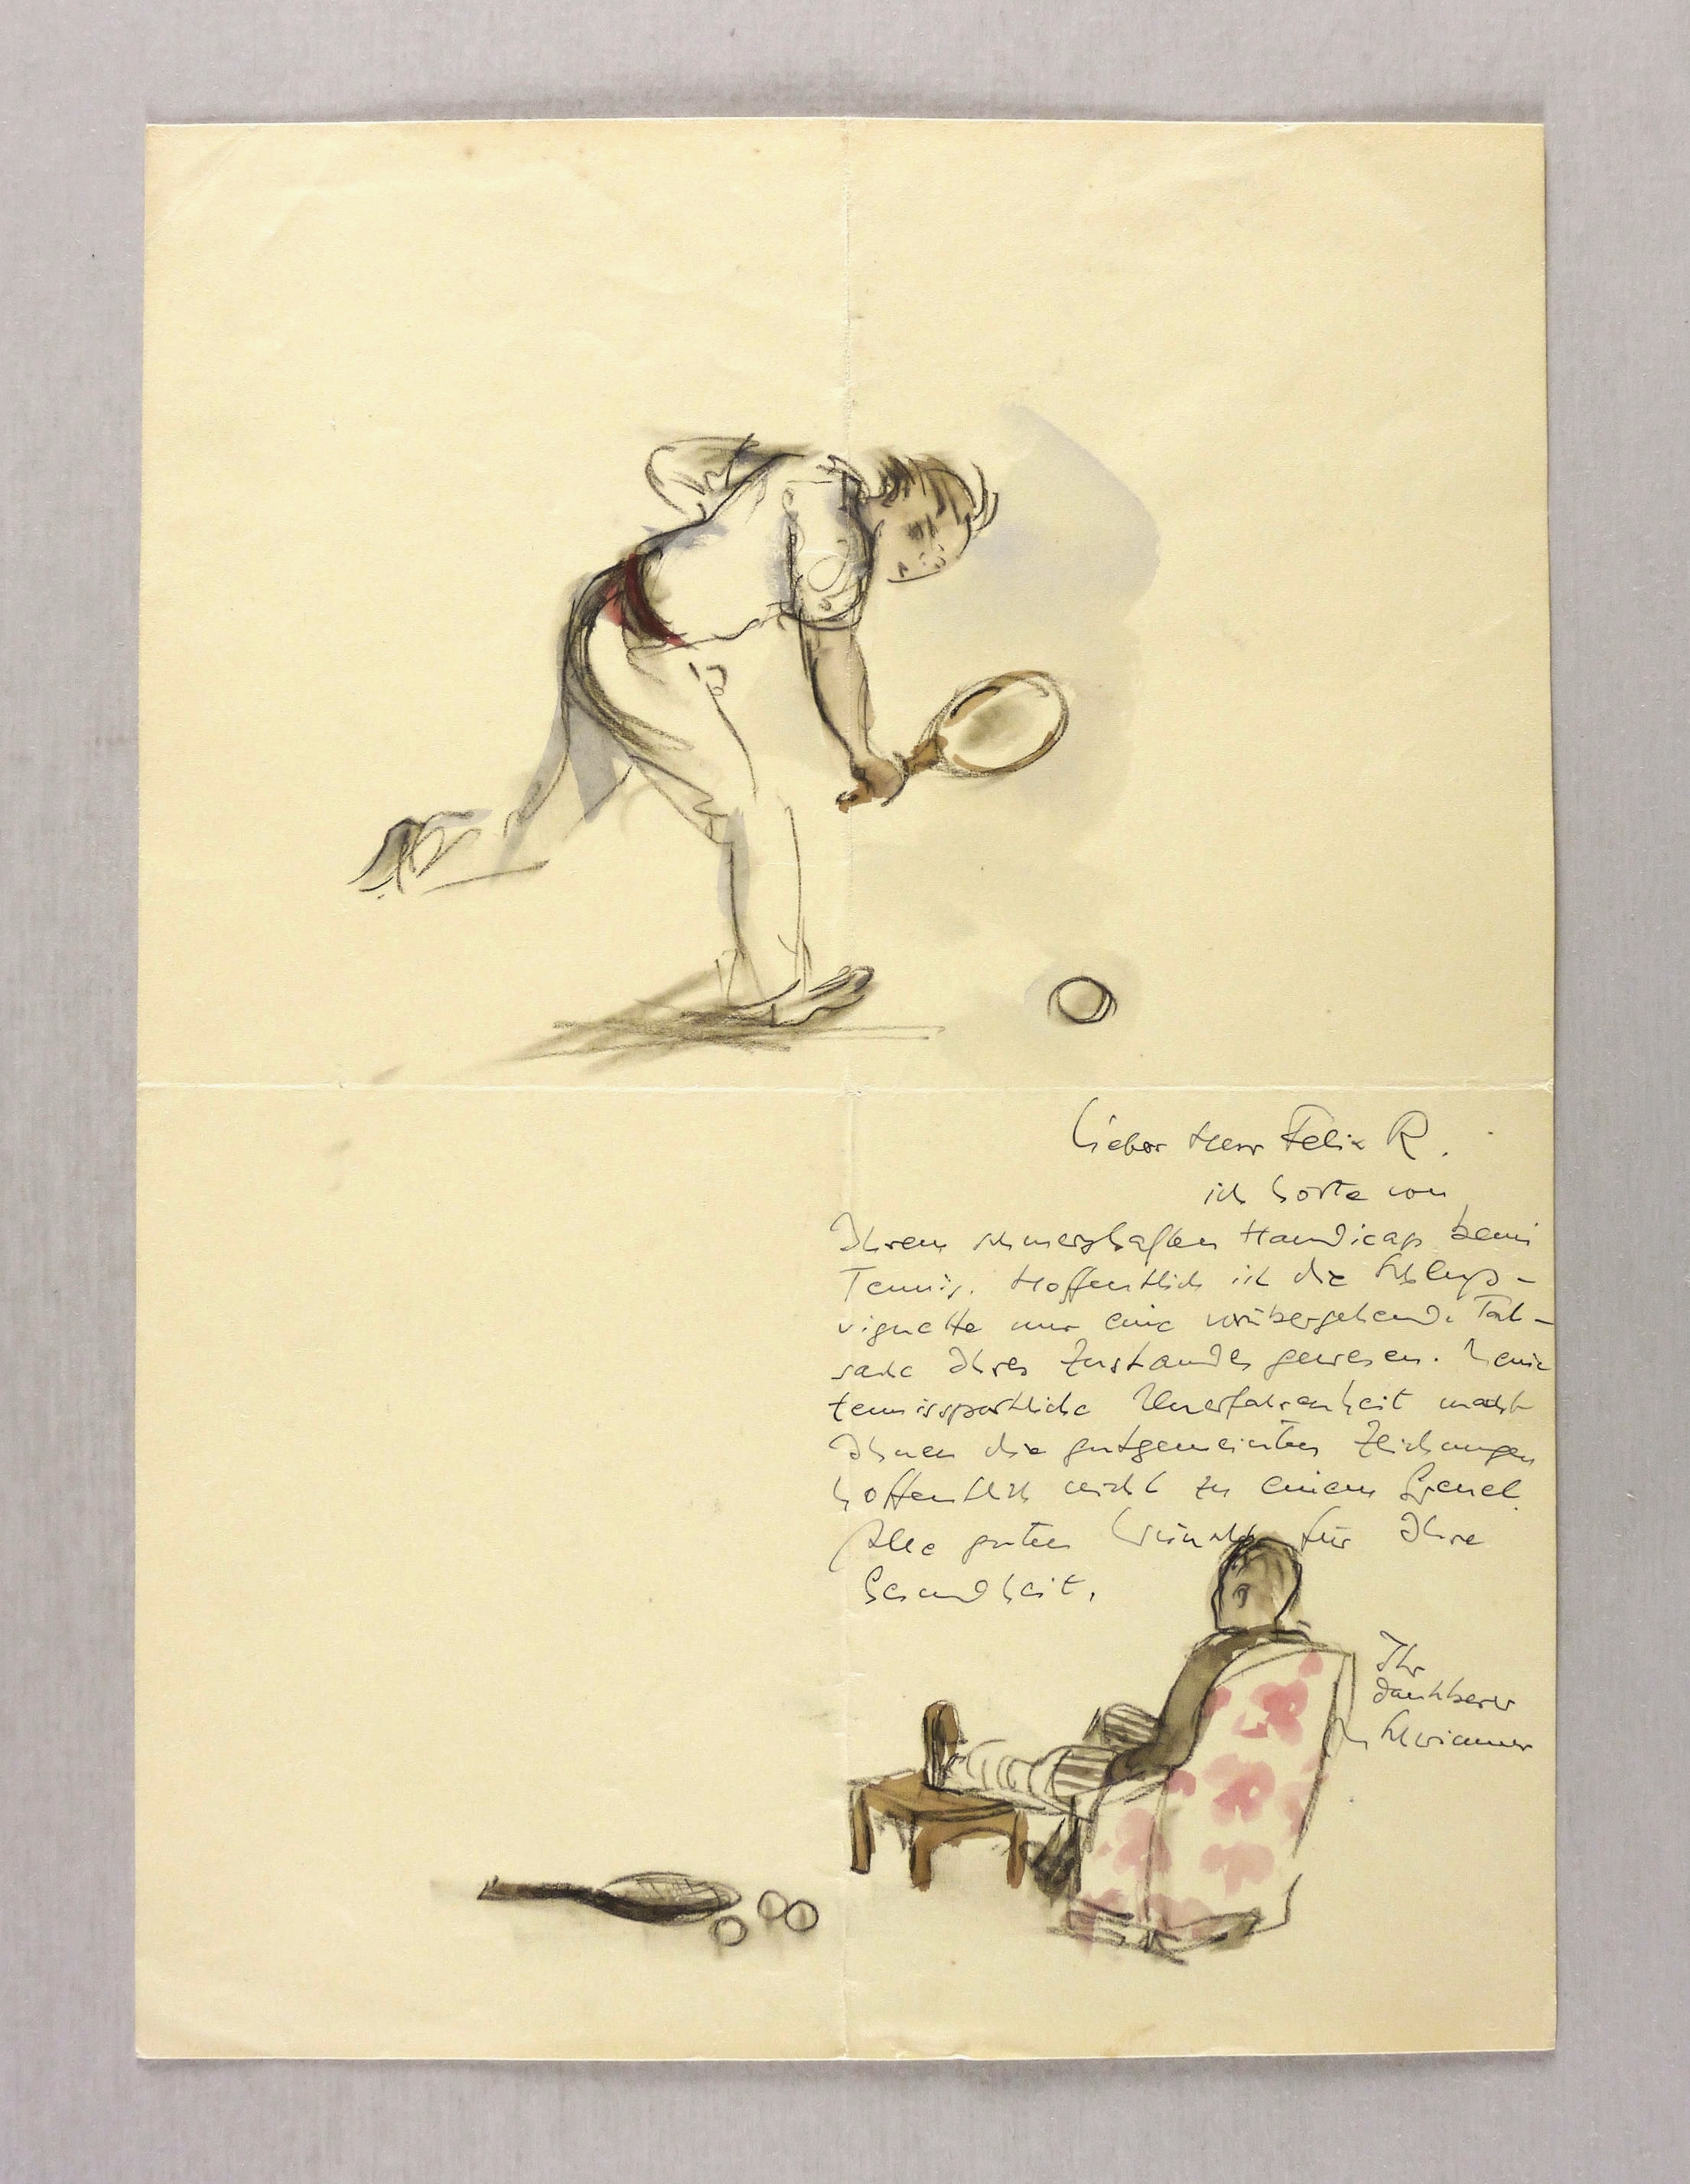 Lieber Herr Felix R.
ich hörte von
Ihrem schmerzhaften Handicap beim
Tennis. Hoffentlich ist die Schluß-
vignette nur eine vorübergehende Tat-
sache Ihres Zustandes gewesen. Meine
tennissportliche Unerfahrenheit macht
Ihnen die gutgemeinten Zeichnungen
hoffentlich nicht zu einem Greuel.
Alle guten Wünsche für Ihre
Gesundheit.
Ihr
dankbarer